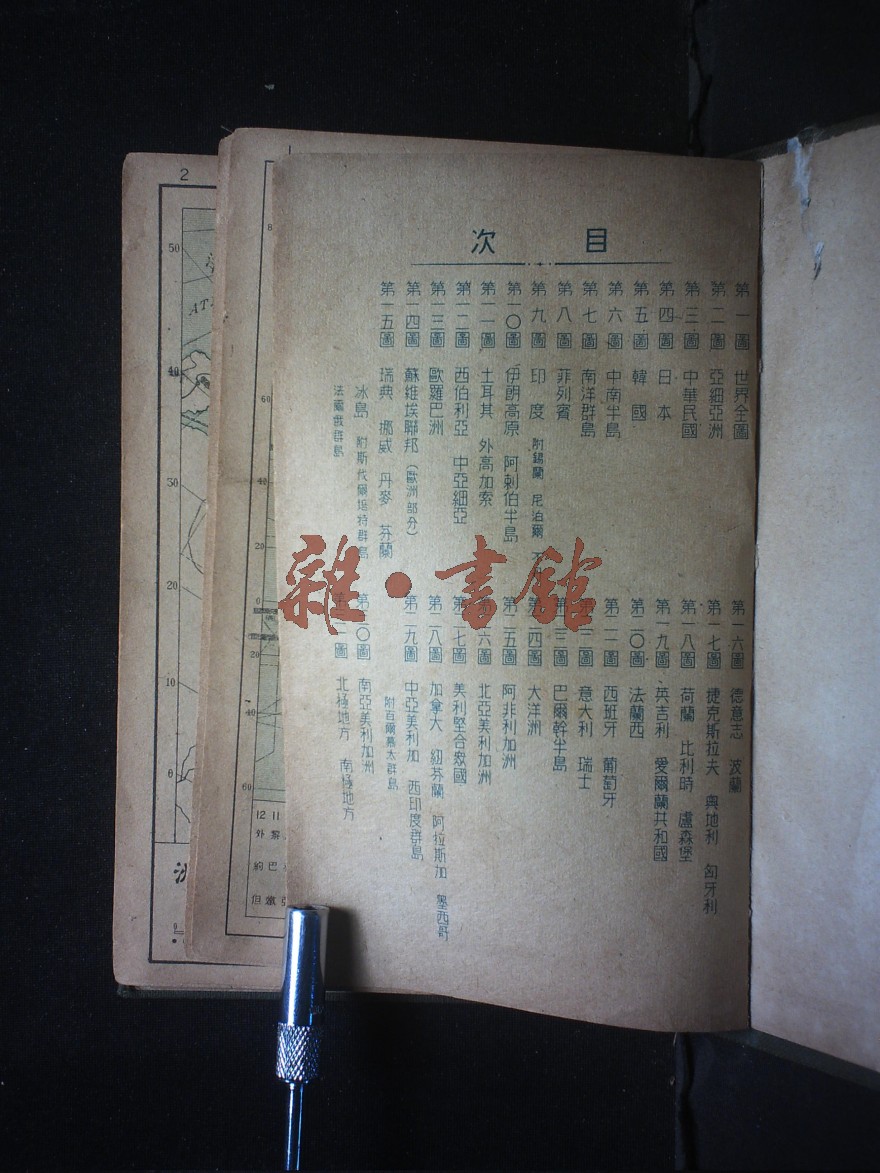 目次
第一圖 世界全圖
第二圖 亞細亞洲
第三圖 中華民國
第四圖 日本
第五圖 韓國
第六圖 中南半島
第七圖 南洋群島
第八圖 菲列賓
第九圖 印度 附錫蘭 尼泊爾 不
第一〇圖 伊朗高原 阿剌伯半島
第一一圖 土耳其 外高加索
第一二圖 西伯利亞 中亞細亞
第一三圖 歐羅巴洲
第一四圖 蘇維埃聯邦（歐洲部分）
第一五圖 瑞典 挪威 丹麥 芬蘭
冰島 附斯代爾塢特群島
法羅俄群島
第一六圖 德意志 波蘭
第一七圖 捷克斯拉夫 奧地利 匈牙利
第一八圖 荷蘭 比利時 盧森堡
第一九圖 英吉利 愛爾蘭共和國
第二〇圖 法蘭西
第二一圖 西班牙 葡萄牙
第二二圖 意大利 瑞士
第二三圖 巴爾幹半島
第二四圖 大洋洲
第二五圖 阿非利加洲
第二六圖 北亞美利加洲
第二七圖 美利堅合眾國
第二八圖 加拿大 紐芬蘭 阿拉斯加 墨西哥
第二九圖 中亞美利加 西印度群島
附百爾慕大群島
第三〇圖 南亞美利加洲
第三一圖 北極地方 南極地方
雜·書館
2
50
AT
40
30
20
10
0
1
60
40
20
0
20
40
60
12 11
外
巴